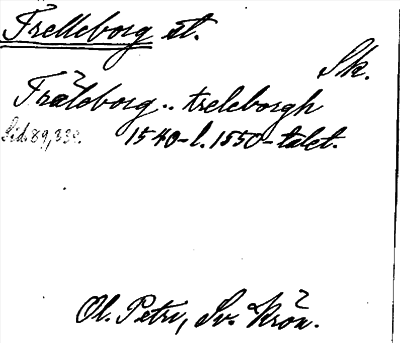 Trelleborg st.
Sk.
Træleborg.. treleborgh
Lid. 89, 338. 1540- l. 1550-talet.
Ol. Petri, Sv. Krön.